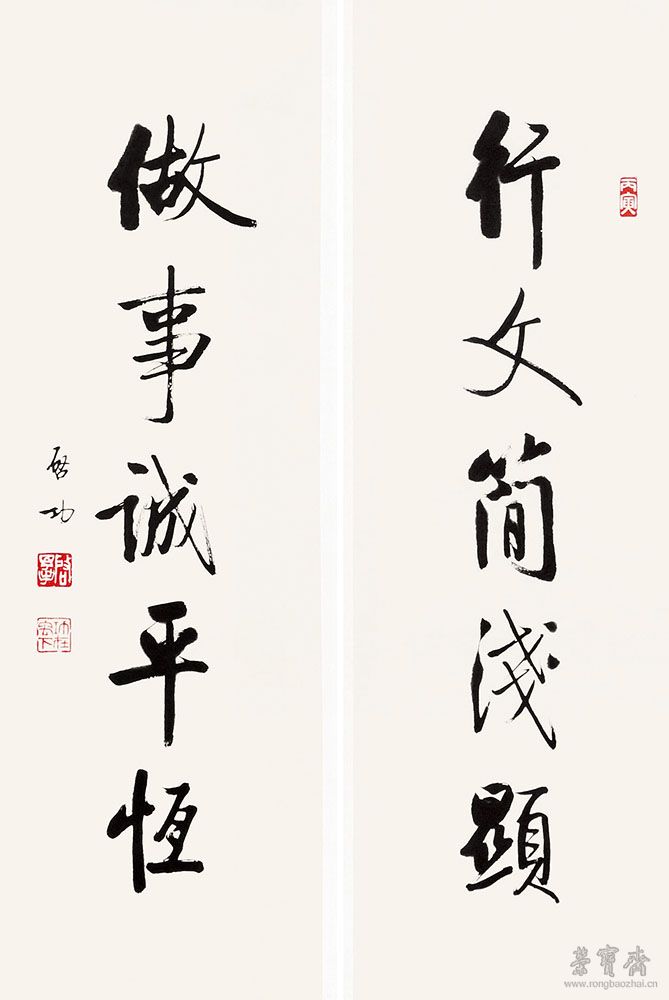 行文简淺顯
丙寅
做事诚平恆
启功
榮寶齋
www.rongbaozhai.cn